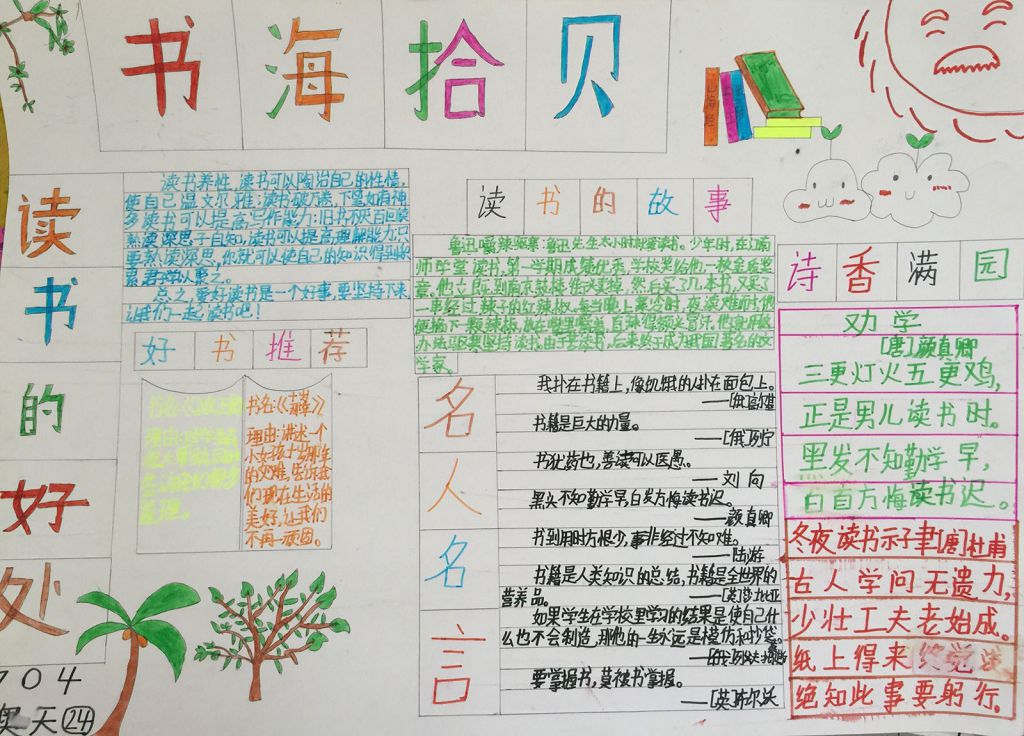 书海拾贝
读书的好处
读书养性,读书可以陶冶自己的性情,
使自己温文尔雅;读书破万卷,下笔如有神
多读书可以提高写作能力;旧书不厌百回读
熟读深思子自知,读书可以提高理解能力,只
要熟读深思,你就可以使自己的知识得到积
累,君子学以聚之。
总之,爱好读书是一个好事,要坚持下来
让我们一起读书吧!
好书推荐
书名:《
理由:
书名:《
理由:讲述一个
小女孩
的艰难,告诉
们现在生活的
美好,让我们
不再一顽固。
读书的故事
鲁迅嚼辣驱寒:鲁迅先生从小时就爱读书。少年时,在江南
师学堂读书,第一学期成绩优秀,学校奖给他一枚金质奖
章。他立即到南京鼓楼街头卖掉,然后买了几本书,又买了
一串红辣椒。每当晚上寒冷时,夜读难耐,他
便摘下一颗辣椒,放在嘴里嚼着,直辣得额头冒汗。他就用
办法驱寒坚持读书。由于苦读书,后来终于成为我国著名的文
学家。
名人名言
我扑在书籍上,像饥饿的人扑在面包上。
——[俄]高尔基
书籍是巨大的力量。
——[俄]列宁
书犹药也,善读可以医愚。
——刘向
黑头不知勤学早,白发方悔读书迟。
——颜真卿
书到用时方恨少,事非经过不知难。
——陆游
书籍是人类知识的总结,书籍是全世界的
营养品。
——[英]莎士比亚
如果学生在学校里学习的结果是使自己什
么也不会制造,那他的一生永远是模仿和抄袭。
要掌握书,莫被书掌握。
——[英]布尔沃
诗香满园
劝学
[唐]颜真卿
三更灯火五更鸡,
正是男儿读书时。
黑发不知勤学早,
白首方悔读书迟。
冬夜读书示子聿[唐]杜甫
古人学问无遗力,
少壮工夫老始成。
纸上得来
绝知此事要躬行。
704
天24